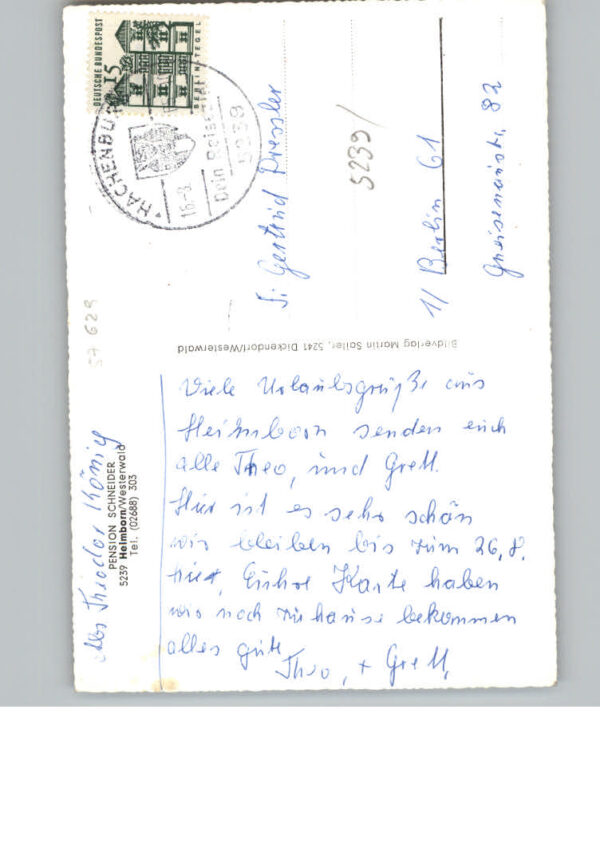 Viele Urlaubsgrüße aus
Heimborn senden euch
alle Theo, und Gretl.
Hier ist es sehr schön
wir bleiben bis zum 26.8.
hier, Euhre Karte haben
wir noch zu hause bekommen
alles gute
Theo, + Gretl,
Abs Theodor König
PENSION SCHNEIDER
5239 Heimborn/Westerwald
Tel. (02688) 303
Bildverlag Martin Sailer, 5241 Dickendorf/Westerwald
DEUTSCHE BUNDESPOST
15
BERLIN TEGEL
HACHENBURG
16-8.
Dein Reise
5239
Gertrud Pressler
5239/
1/ Berlin 61
Gneisenaustr, 82
57 629